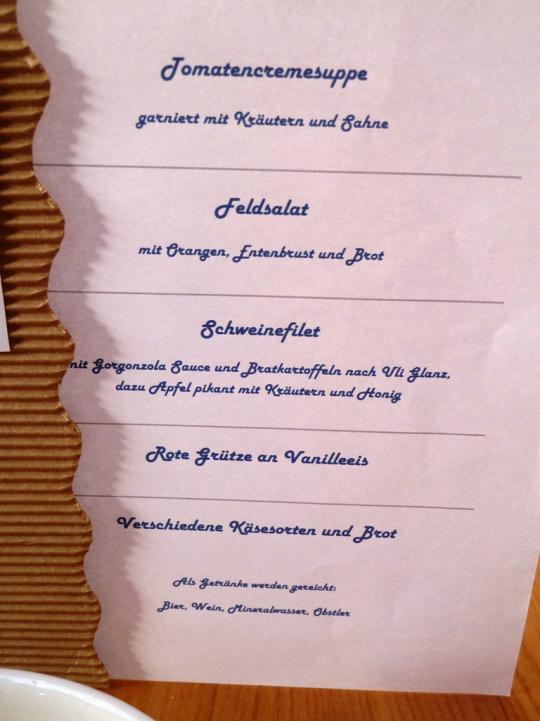 Tomatencremesuppe
garniert mit Kräutern und Sahne
Feldsalat
mit Orangen, Entenbrust und Brot
Schweinefilet
mit Gorgonzola Sauce und Bratkartoffeln nach Uli Glanz,
dazu Apfel pikant mit Kräutern und Honig
Rote Grütze an Vanilleeis
Verschiedene Käsesorten und Brot
Als Getränke werden gereicht:
Bier, Wein, Mineralwasser, Obstler